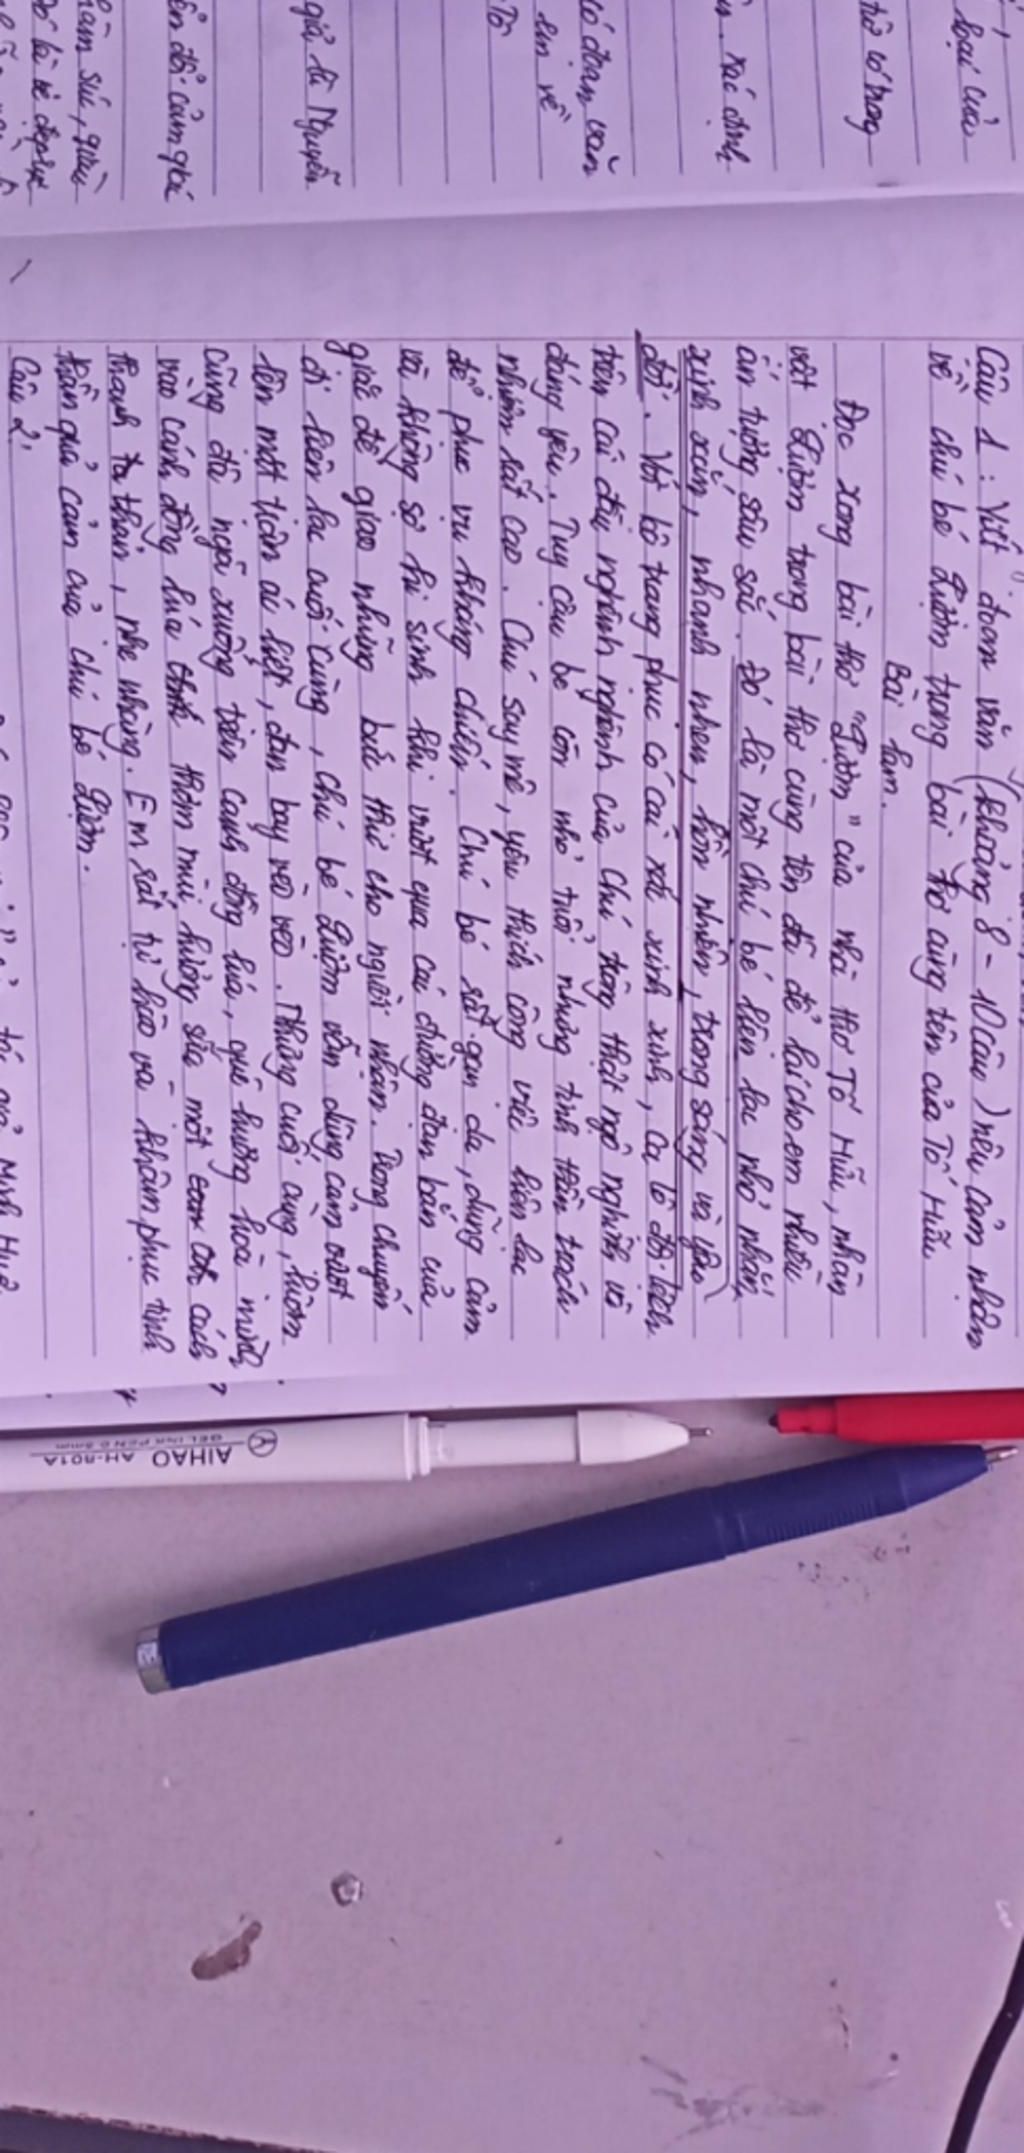 loại của
thờ có trong
Xác định
có đoạn văn
lên về
Tô
giả là Nguyễn
cảm giác
sâu, giàu
Câu 1: Viết đoạn văn (khoảng 8 - 10 câu) nêu cảm nhận
về chú bé Lượm trong bài thơ cùng tên của Tố Hữu.
Bài làm.
Đọc xong bài thơ "Lượm" của nhà thơ Tố Hữu, nhân
vật Lượm trong bài thơ cùng tên đã để lại cho em nhiều
ấn tượng sâu sắc. Đó là một chú bé liên lạc nhỏ nhắn,
xinh xắn, nhanh nhẹn, hồn nhiên, trong sáng và yêu
đời. Với bộ trang phục có cái xắc xinh xinh, ca lô đội lệch
trên cái đầu nghênh nghênh của chú trông thật ngộ nghĩnh và
đáng yêu. Tuy cậu bé còn nhỏ tuổi nhưng tinh thần trách
nhiệm rất cao. Chú say mê, yêu thích công việc liên lạc
để phục vụ kháng chiến. Chú bé rất gan dạ, dũng cảm
và không sợ hi sinh khi vượt qua cái đường đạn bắn của
giặc để giao những bức thư cho người nhận. Trong chuyến
đi liên lạc cuối cùng, chú bé Lượm vẫn dũng cảm vượt
lên mặt trận ác liệt, đạn bay vèo vèo. Nhưng cuối cùng, Lượm
cũng đã ngã xuống trên cánh đồng lúa, quê hương hòa mình
vào cánh đồng lúa thơm mùi hương sữa một cách
thanh thản, nhẹ nhàng. Em rất tự hào và khâm phục tinh
thần quả cảm của chú bé Lượm.
Câu 2:
tác giả Minh Huệ
AIHAO AH-801A
GEL INK PEN 0.5mm